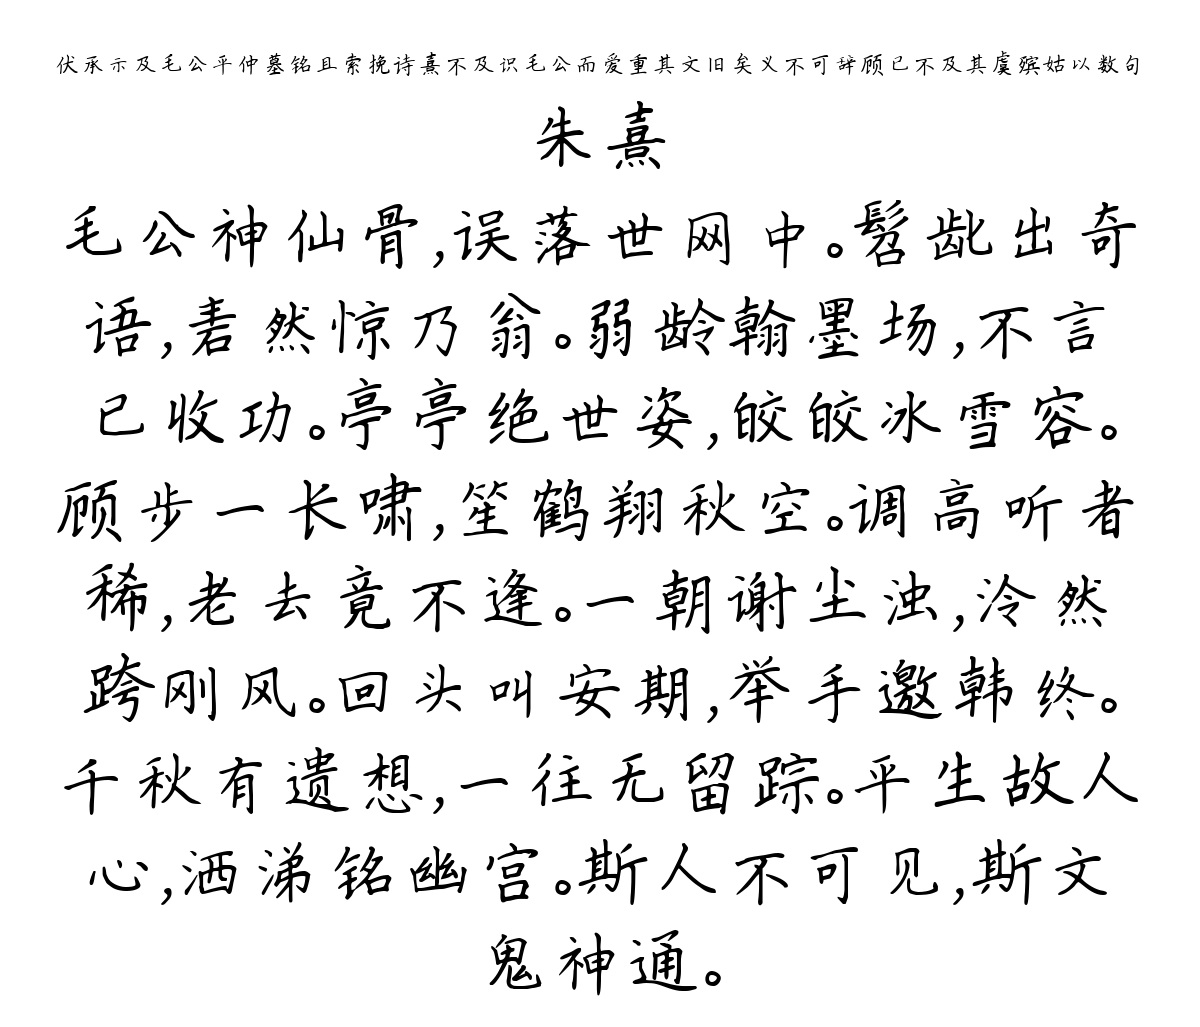 伏承示及毛公平仲墓铭且索挽诗熹不及识毛公而爱重其文旧矣义不可辞顾已不及其虞殡姑以数句
朱熹
毛公神仙骨,误落世网中。髫龀出奇
语,砉然惊乃翁。弱龄翰墨场,不言
已收功。亭亭绝世姿,皎皎冰雪容。
顾步一长啸,笙鹤翔秋空。调高听者
稀,老去竟不逢。一朝谢尘浊,泠然
跨刚风。回头叫安期,举手邀韩终。
千秋有遗想,一往无留踪。平生故人
心,洒涕铭幽宫。斯人不可见,斯文
鬼神通。